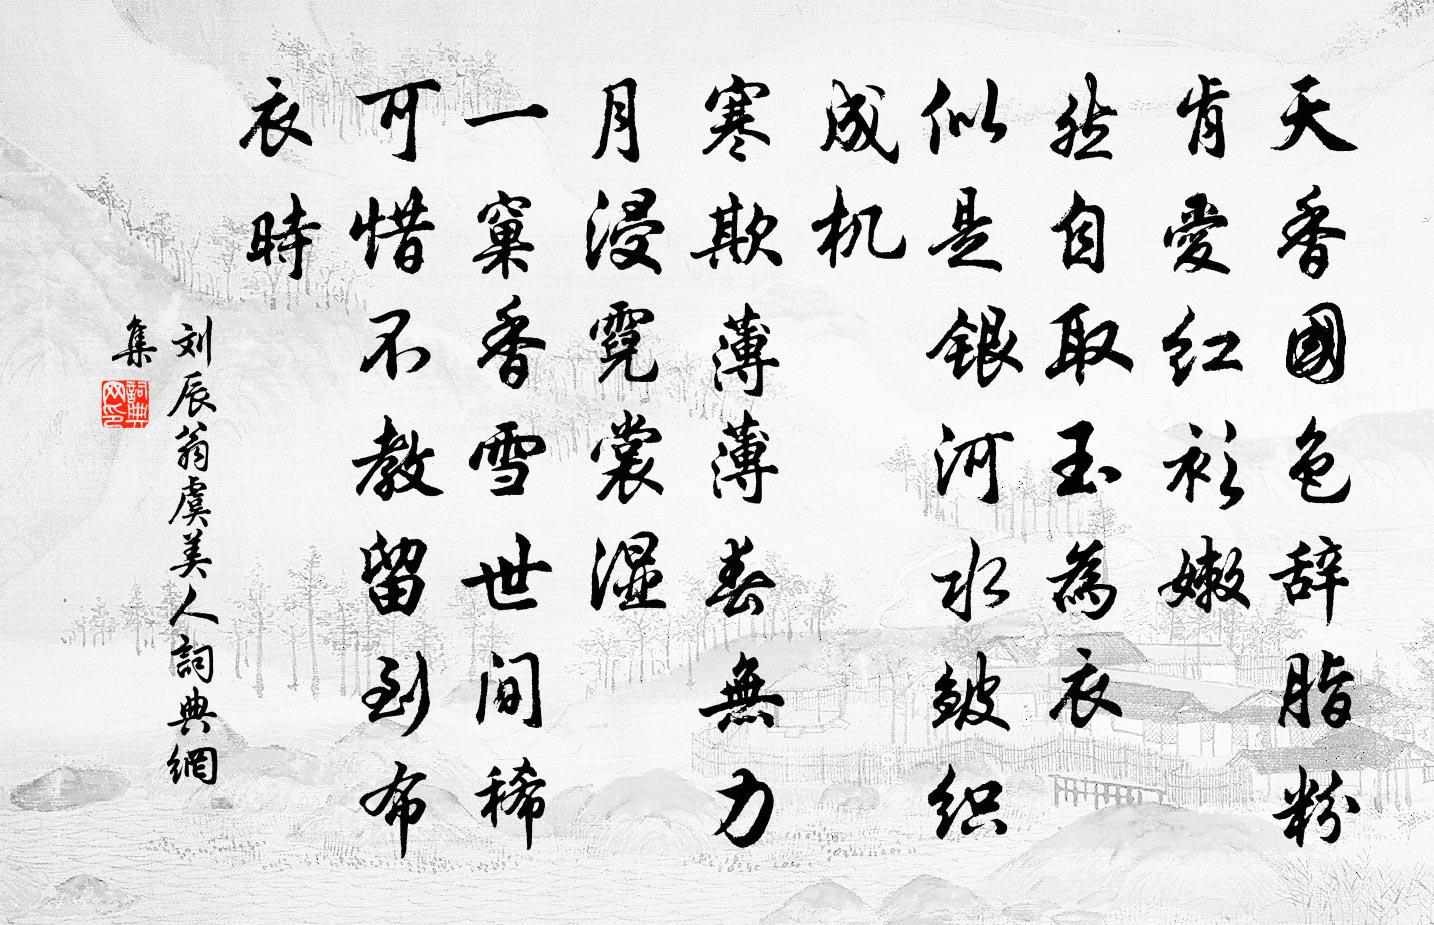 天香國色辞脂粉
肯愛红衫嫩
然自取玉為衣
似是銀河水皺织
成机
寒欺薄薄春無力
月浸霓裳湿
一窠香雪世间稀
可惜不教留到布
衣時
刘辰翁虞美人詞典網
集
詞典网印